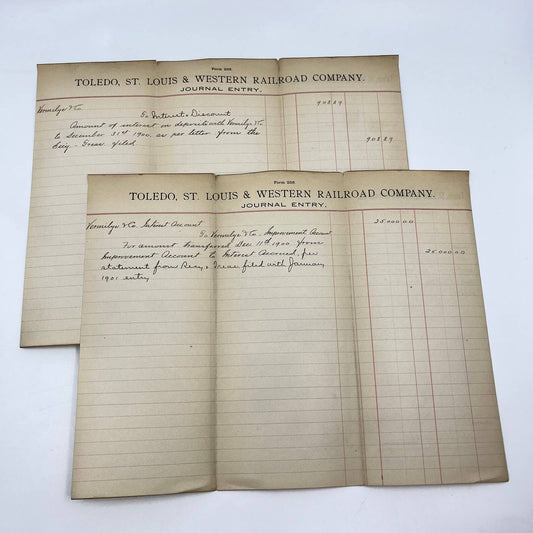 Form 258
TOLEDO, ST. LOUIS & WESTERN RAILROAD COMPANY.
JOURNAL ENTRY.
Vermilye & Co. 908 89
To Interest & Discount
Amount of interest on deposits with Vermilye & Co
to December 31st 1900, as per letter from the 908 89
Secy - Treas filed
Form 258
TOLEDO, ST. LOUIS & WESTERN RAILROAD COMPANY.
JOURNAL ENTRY.
Vermilye & Co. Interest Account 25 000 00
To Vermilye & Co. Improvement Account
For amount transferred Dec 11th 1900 from 25 000 00
Improvement Account to Interest Accrued, per
statement from Secy & Treas filed with January
1901 entry